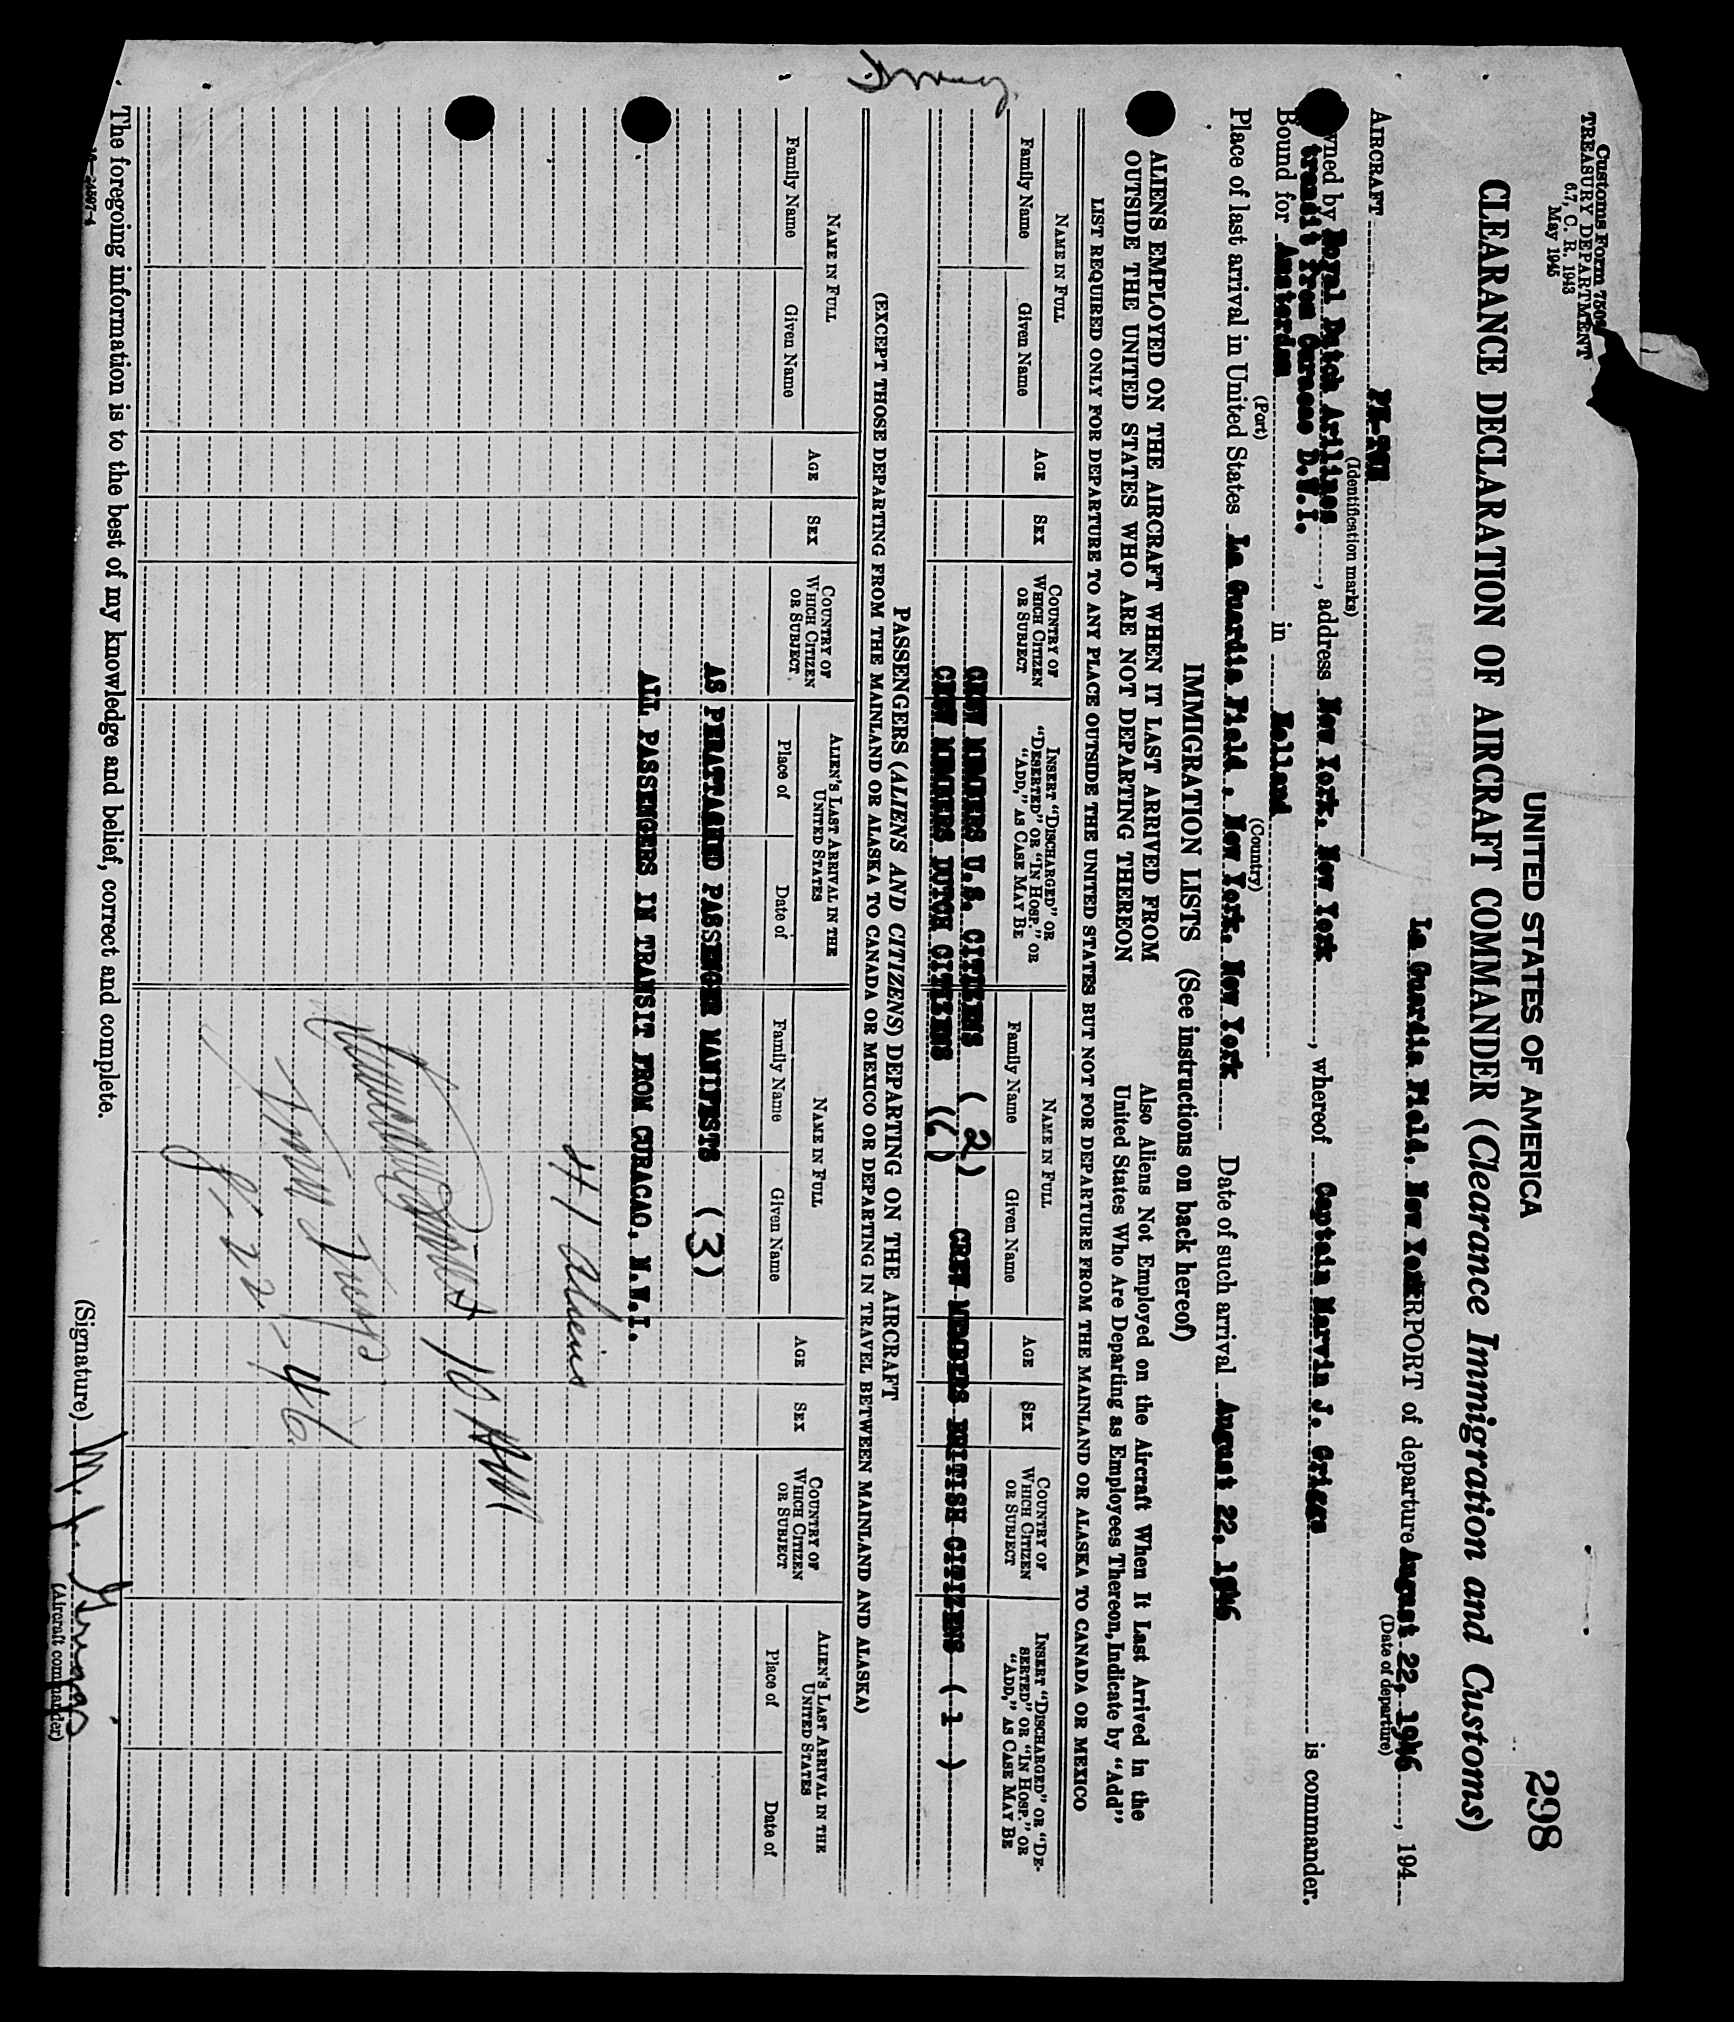 Customs Form 7509
TREASURY DEPARTMENT
6.7, C. R. 1943
May 1945
UNITED STATES OF AMERICA
298
CLEARANCE DECLARATION OF AIRCRAFT COMMANDER (Clearance Immigration and Customs)
La Guardia Field, New York RPORT of departure August 22, 1946, 194
(Date of departure)
AIRCRAFT
(Identification marks)
wned by Royal Dutch Arilines, address New York, New York, whereof Captain Marvin J. Griggs is commander.
transit from Curacao D.W.I.
Bound for Amsterdam in Holland
(Port) (Country)
Place of last arrival in United States La Guardia Field, New York, New York Date of such arrival August 22, 1946
IMMIGRATION LISTS (See instructions on back hereof)
ALIENS EMPLOYED ON THE AIRCRAFT WHEN IT LAST ARRIVED FROM
OUTSIDE THE UNITED STATES WHO ARE NOT DEPARTING THEREON
Also Aliens Not Employed on the Aircraft When It Last Arrived in the
United States Who Are Departing as Employees Thereon, Indicate by "Add"
LIST REQUIRED ONLY FOR DEPARTURE TO ANY PLACE OUTSIDE THE UNITED STATES BUT NOT FOR DEPARTURE FROM THE MAINLAND OR ALASKA TO CANADA OR MEXICO
NAME IN FULL
Family Name Given Name
AGE
SEX
COUNTRY OF
WHICH CITIZEN
OR SUBJECT
INSERT "DISCHARGED" OR
"DESERTED" OR "IN HOSP." OR
"ADD," AS CASE MAY BE
NAME IN FULL
Family Name Given Name
AGE
SEX
COUNTRY OF
WHICH CITIZEN
OR SUBJECT
INSERT "DISCHARGED" OR "DE-
SERTED" OR "IN HOSP." OR
"ADD," AS CASE MAY BE
CREW MEMBERS U.S. CITIZENS (2)
CREW MEMBERS DUTCH CITIZENS (6) CREW MEMBERS BRITISH CITIZENS (1)
PASSENGERS (ALIENS AND CITIZENS) DEPARTING ON THE AIRCRAFT
(EXCEPT THOSE DEPARTING FROM THE MAINLAND OR ALASKA TO CANADA OR MEXICO OR DEPARTING IN TRAVEL BETWEEN MAINLAND AND ALASKA)
NAME IN FULL
Family Name Given Name
AGE
SEX
COUNTRY OF
WHICH CITIZEN
OR SUBJECT
ALIEN'S LAST ARRIVAL IN THE
UNITED STATES
Place of Date of
NAME IN FULL
Family Name Given Name
AGE
SEX
COUNTRY OF
WHICH CITIZEN
OR SUBJECT
ALIEN'S LAST ARRIVAL IN THE
UNITED STATES
Place of Date of
AS PERATTACHED PASSENGER MANIFESTS (3)
ALL PASSENGERS IN TRANSIT FROM CURACAO, N.W.I.
41 Aliens
8-22-46
The foregoing information is to the best of my knowledge and belief, correct and complete.
(Signature) M. J. Griggs
(Aircraft commander)